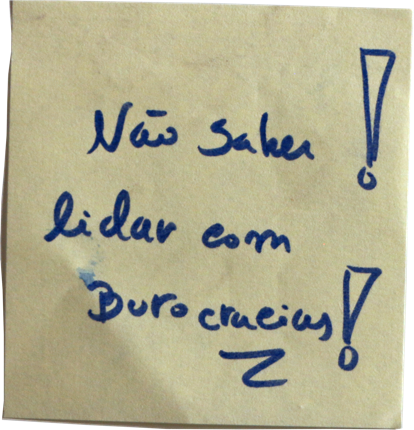 Não saber !
lidar com
Burocracias !